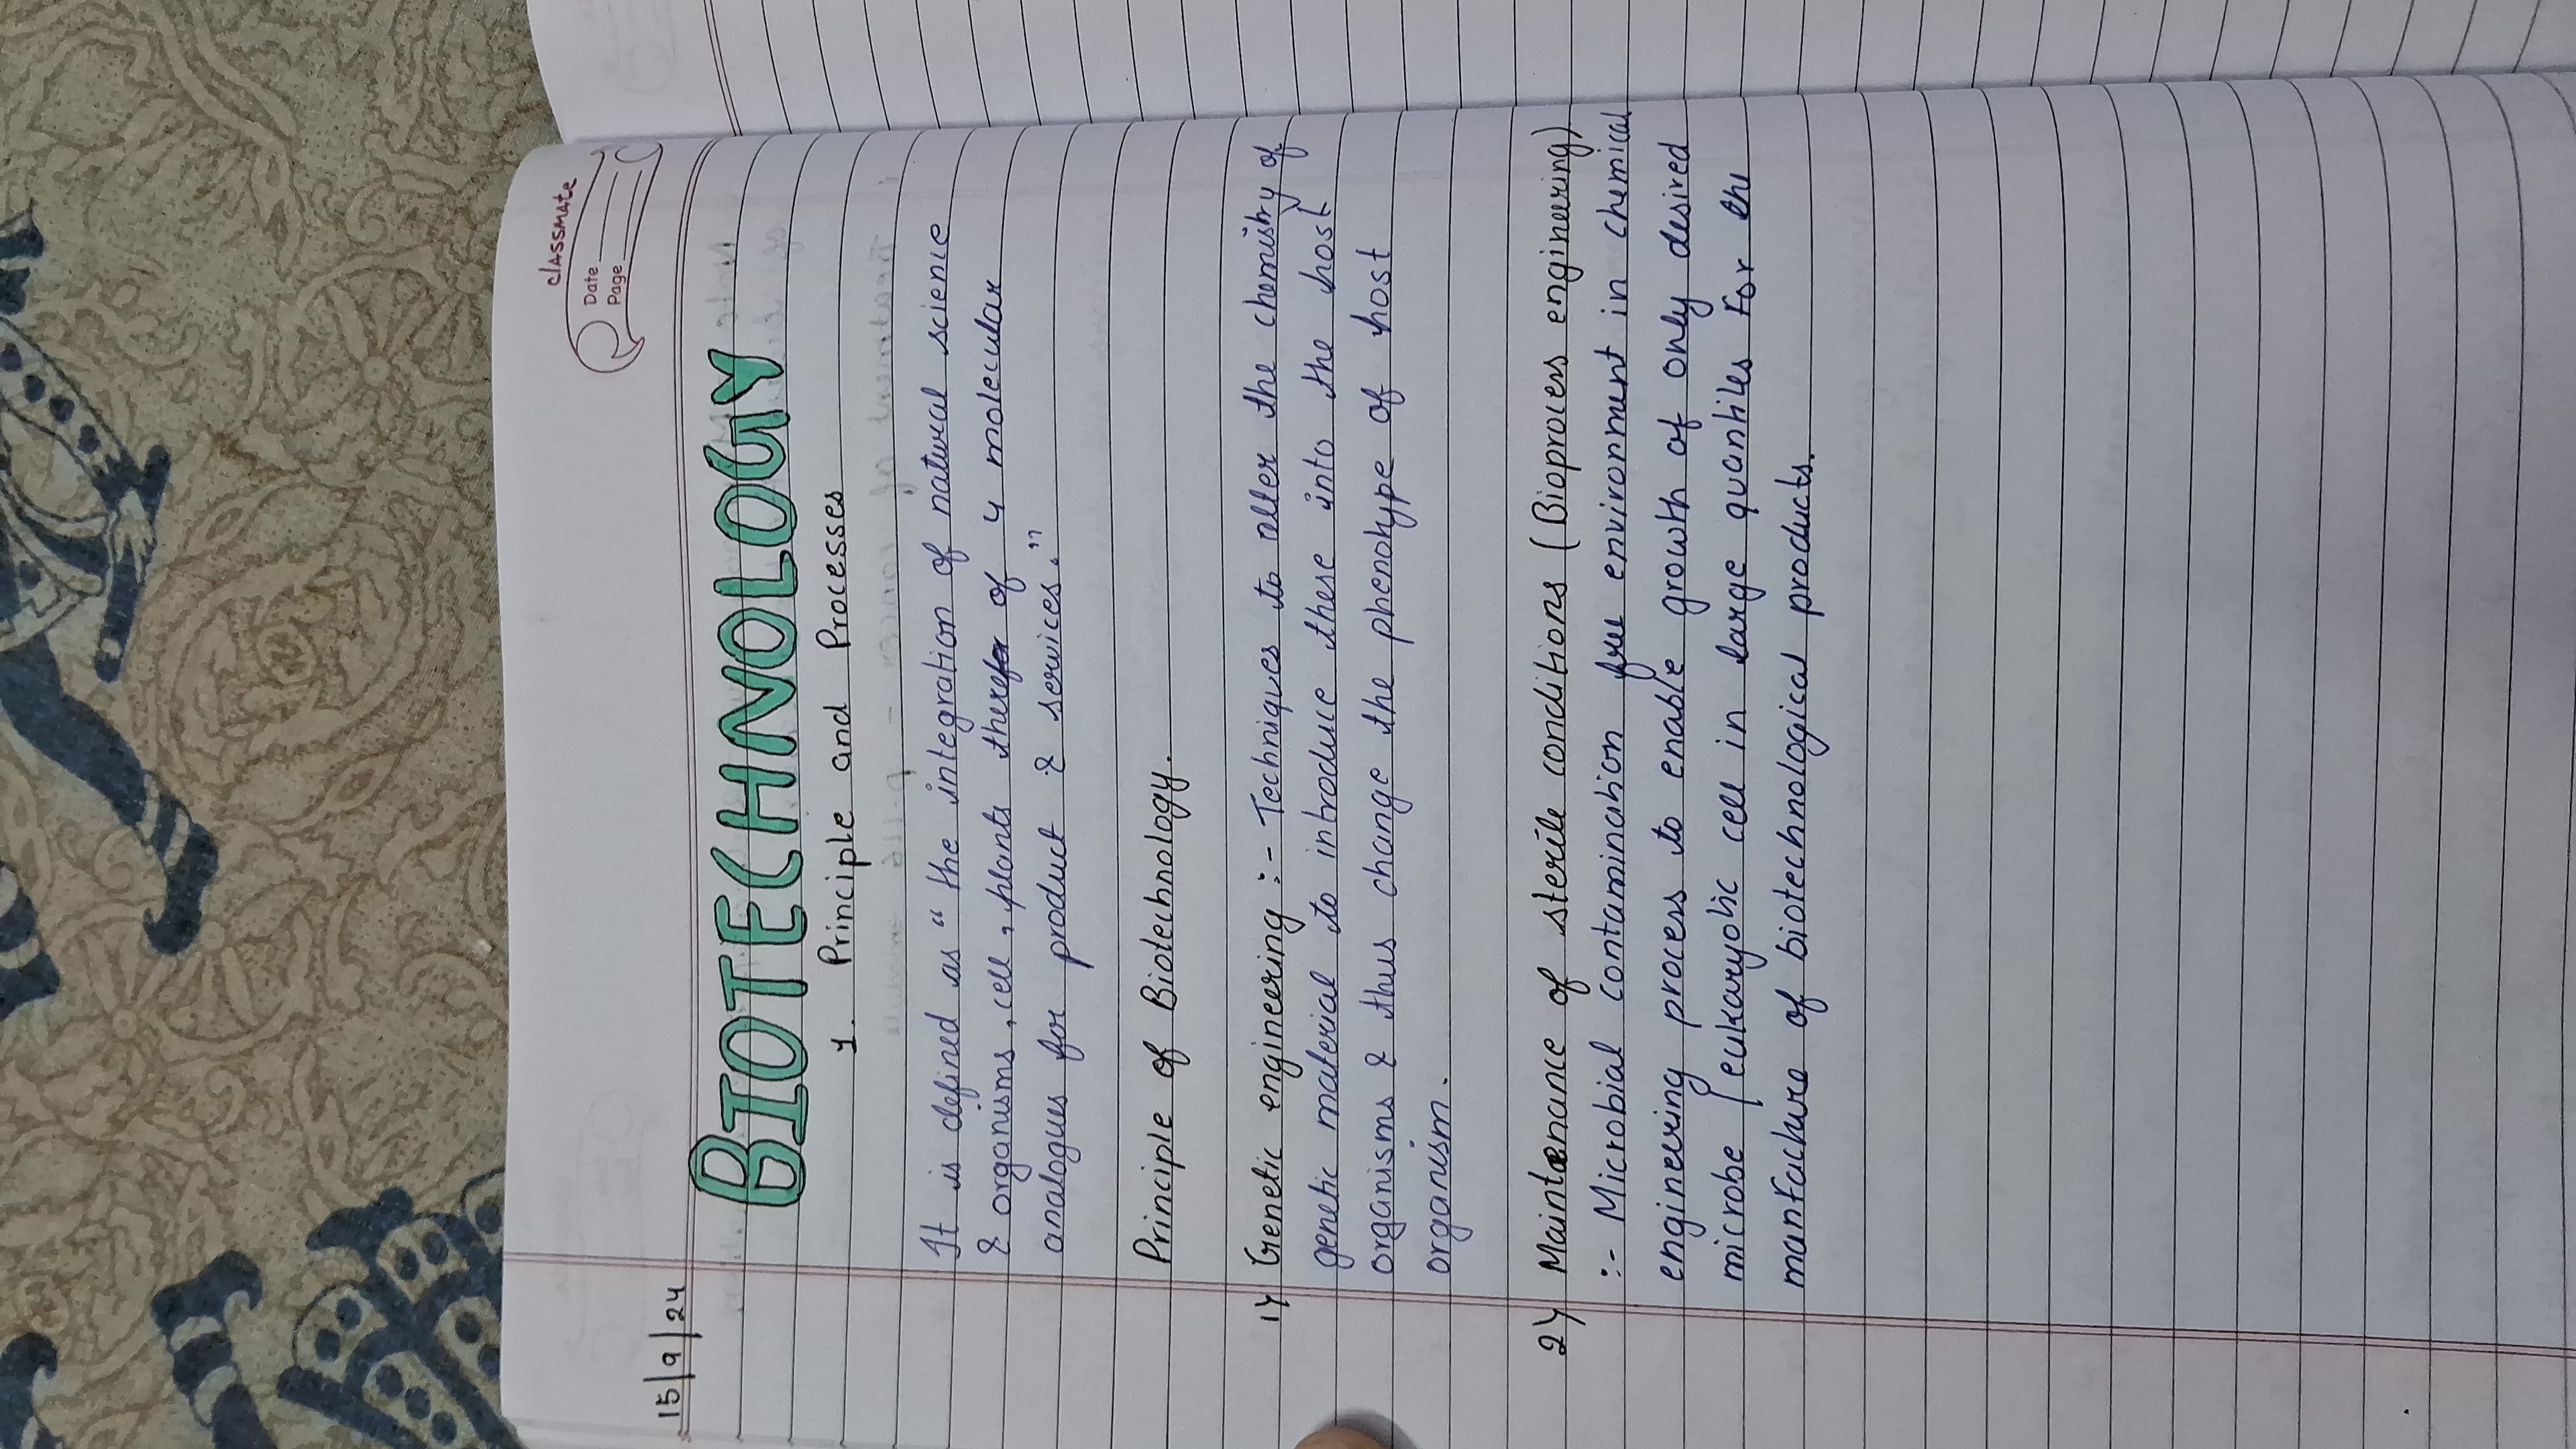 classmate
Date
Page
15/9/24
BIOTECHNOLOGY
1. Principle and Processes
It is defined as “ the integration of natural science
& organisms, cell, plants thereof of 4 molecular
analogues for product & services.”
Principle of Biotechnology.
1) Genetic engineering :- Techniques to alter the chemistry of
genetic material to introduce these into the host
organisms & thus change the phenotype of host
organism.
2) Maintenance of sterile conditions (Bioprocess engineering)
:- Microbial contamination free environment in chemical
engineering process to enable growth of only desired
microbe / eukaryotic cell in large quantiles for the
manfacture of biotechnological products.